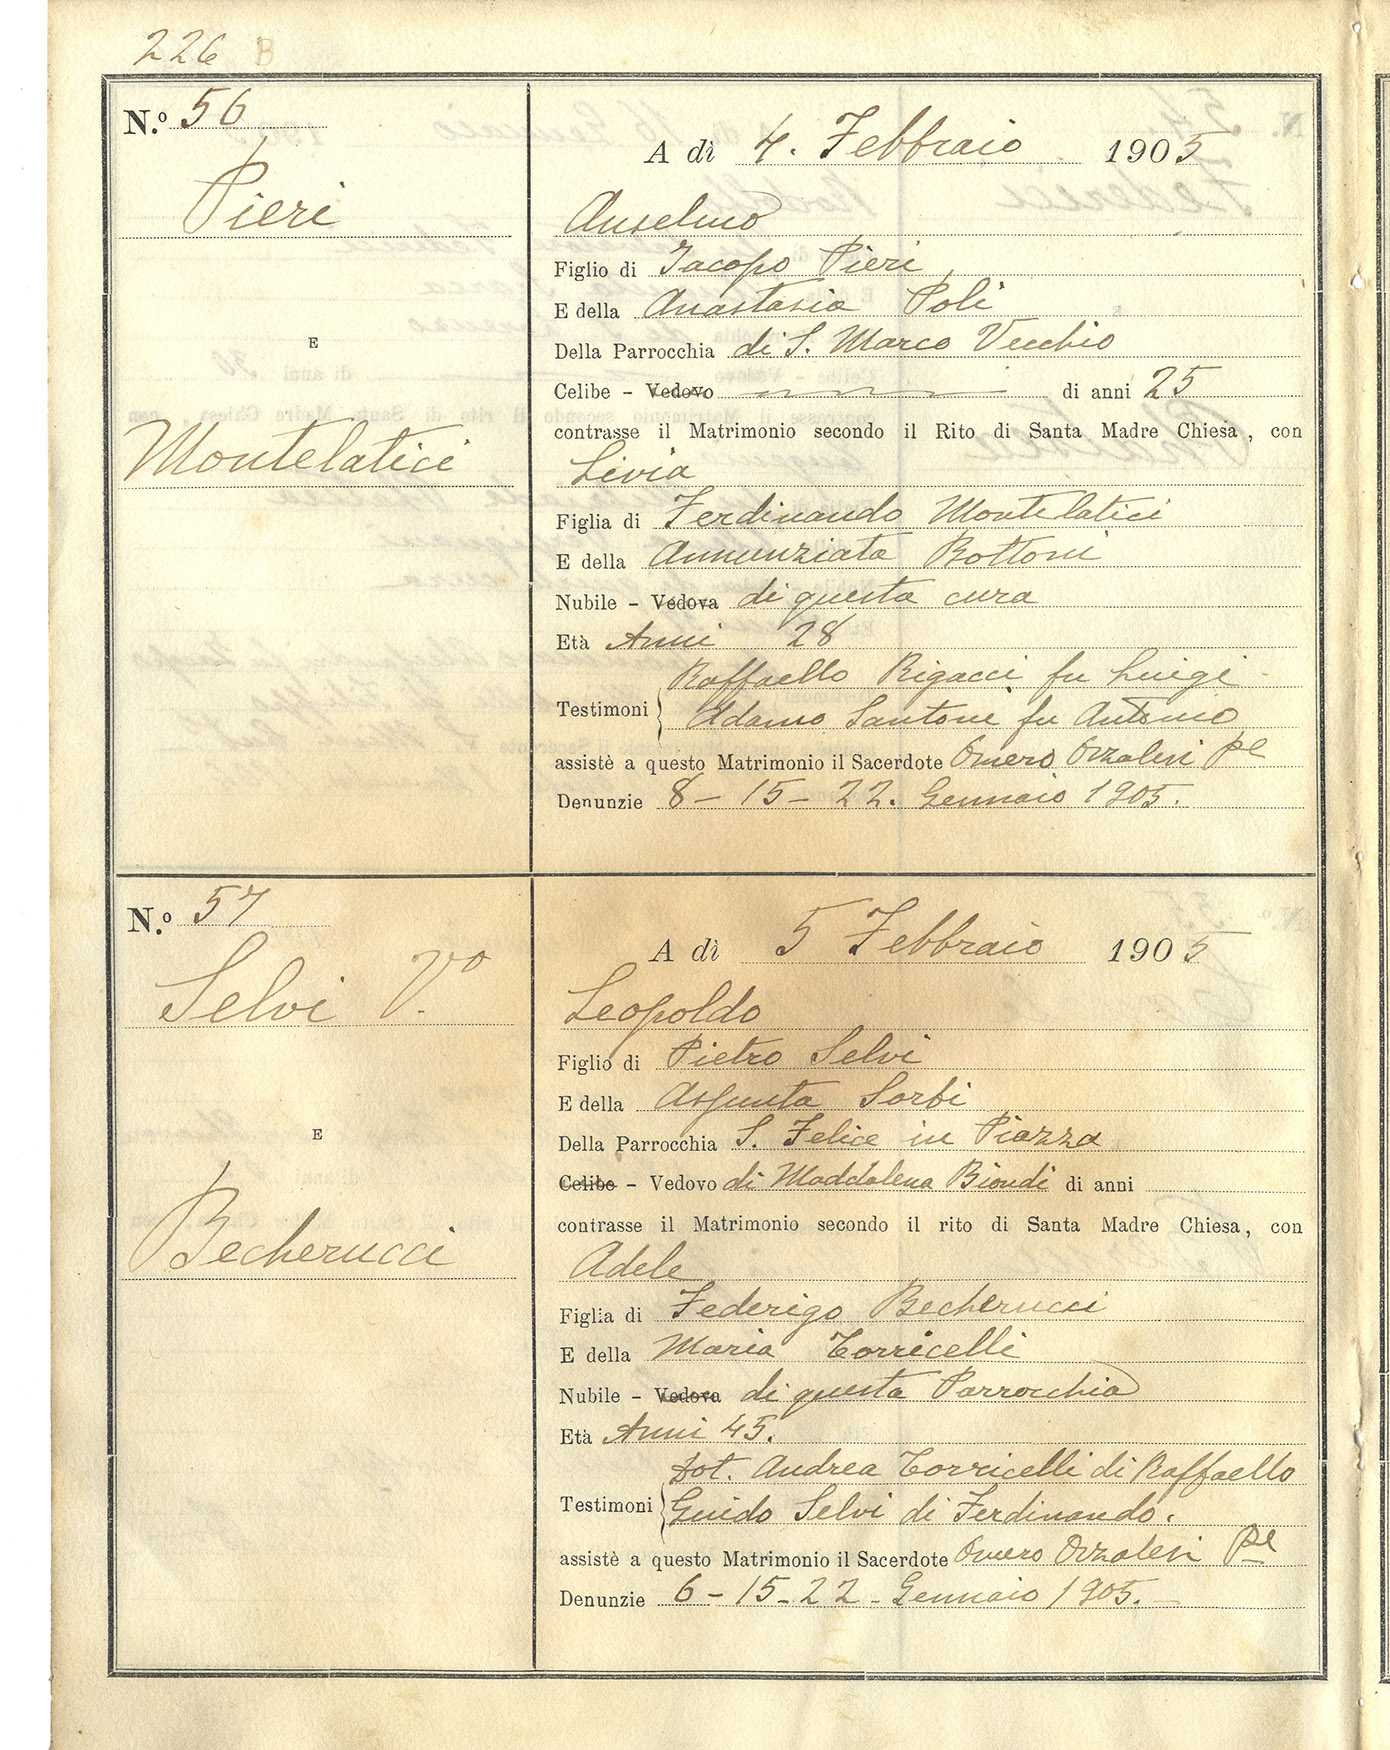 226 B
N.º 56
Pieri
E
Montelatici
A dì 4. Febbraio 1905
Anselmo
Figlio di Jacopo Pieri
E della Anastasia Poli
Della Parrocchia di S. Marco Vecchio
Celibe - Vedovo di anni 25
contrasse il Matrimonio secondo il Rito di Santa Madre Chiesa, con
Livia
Figlia di Ferdinando Montelatici
E della Annunziata Bottoni
Nubile - Vedova di questa cura
Età Anni 28
Raffaello Rigacci fu Luigi
Testimoni Adamo Santoni fu Antonio
assistè a questo Matrimonio il Sacerdote Omero Orzalesi
Denunzie 8 - 15 - 22. Gennaio 1905.
N.º 57
Selvi Vº
E
Becherucci
A dì 5 Febbraio 1905
Leopoldo
Figlio di Pietro Selvi
E della Assunta Sorbi
Della Parrocchia S. Felice in Piazza
Celibe - Vedovo di Maddalena Biondi di anni
contrasse il Matrimonio secondo il rito di Santa Madre Chiesa, con
Adele
Figlia di Federigo Becherucci
E della Maria Torricelli
Nubile - Vedova di questa Parrocchia
Età Anni 45.
Dot. Andrea Torricelli di Raffaello
Testimoni Guido Selvi di Ferdinando.
assistè a questo Matrimonio il Sacerdote Omero Orzalesi
Denunzie 6 - 15 - 22 - Gennaio 1905. -